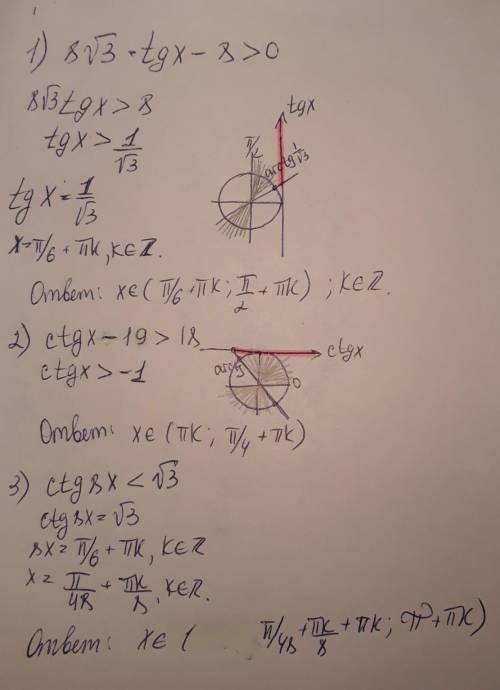 1) 8√3 · tgx − 8 > 0
8√3 tgx > 8
tgx > 1/√3
tgx
π/2
arctg 1/√3
tgx = 1/√3
x = π/6 + πk, k∈Z.
Ответ: x∈(π/6 + πk; π/2 + πk) ; k∈Z.
2) ctgx − 19 > 18
ctgx
ctgx > −1
0
Ответ: x∈(πk; π/4 + πk)
3) ctg8x < √3
ctg8x = √3
8x = π/6 + πk, k∈Z
x = π/48 + πk/8, k∈Z.
Ответ: x∈( π/48 + πk/8 + πk; π + πk)